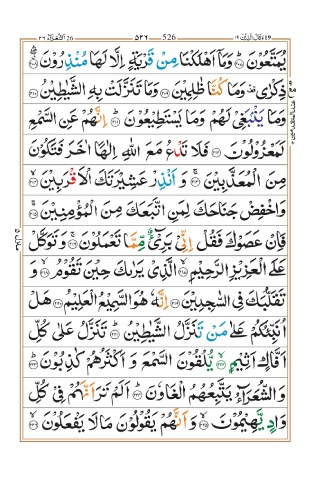 وقال الذين ١٩ ٥٢٦ 526 الشعرآء 26 ٢٦
يُمَتَّعُوْنَ ۟ؕ وَمَاۤ اَهْلَكْنَا مِنْ قَرْيَةٍ اِلَّا لَهَا مُنْذِرُوْنَ ۟
ذِكْرٰی ۛ۫ وَمَا كُنَّا ظٰلِمِيْنَ ۟ وَمَا تَنَزَّلَتْ بِهِ الشَّيٰطِيْنُ ۟
وَمَا يَنْۢبَغِیْ لَهُمْ وَمَا يَسْتَطِيْعُوْنَ ۟ؕ اِنَّهُمْ عَنِ السَّمْعِ
لَمَعْزُوْلُوْنَ ۟ؕ فَلَا تَدْعُ مَعَ اللّٰهِ اِلٰهًا اٰخَرَ فَتَكُوْنَ
مِنَ الْمُعَذَّبِيْنَ ۟ۚ وَ اَنْذِرْ عَشِيْرَتَكَ الْاَقْرَبِيْنَ ۟ۙ
وَاخْفِضْ جَنَاحَكَ لِمَنِ اتَّبَعَكَ مِنَ الْمُؤْمِنِيْنَ ۟ۚ
فَاِنْ عَصَوْكَ فَقُلْ اِنِّیْ بَرِیْٓءٌ مِّمَّا تَعْمَلُوْنَ ۟ۚ وَتَوَكَّلْ
عَلَی الْعَزِيْزِ الرَّحِيْمِ ۟ۙ الَّذِیْ يَرٰىكَ حِيْنَ تَقُوْمُ ۟ۙ وَ
تَقَلُّبَكَ فِی السّٰجِدِيْنَ ۟ اِنَّهٗ هُوَ السَّمِيْعُ الْعَلِيْمُ ۟ هَلْ
اُنَبِّئُكُمْ عَلٰی مَنْ تَنَزَّلُ الشَّيٰطِيْنُ ۟ؕ تَنَزَّلُ عَلٰی كُلِّ
اَفَّاكٍ اَثِيْمٍ ۟ۙ يُّلْقُوْنَ السَّمْعَ وَ اَكْثَرُهُمْ كٰذِبُوْنَ ۟ؕ
وَ الشُّعَرَآءُ يَتَّبِعُهُمُ الْغَاوٗنَ ۟ؕ اَلَمْ تَرَ اَنَّهُمْ فِیْ كُلِّ
وَادٍ يَّهِيْمُوْنَ ۟ۙ وَ اَنَّهُمْ يَقُوْلُوْنَ مَا لَا يَفْعَلُوْنَ ۟ۙ